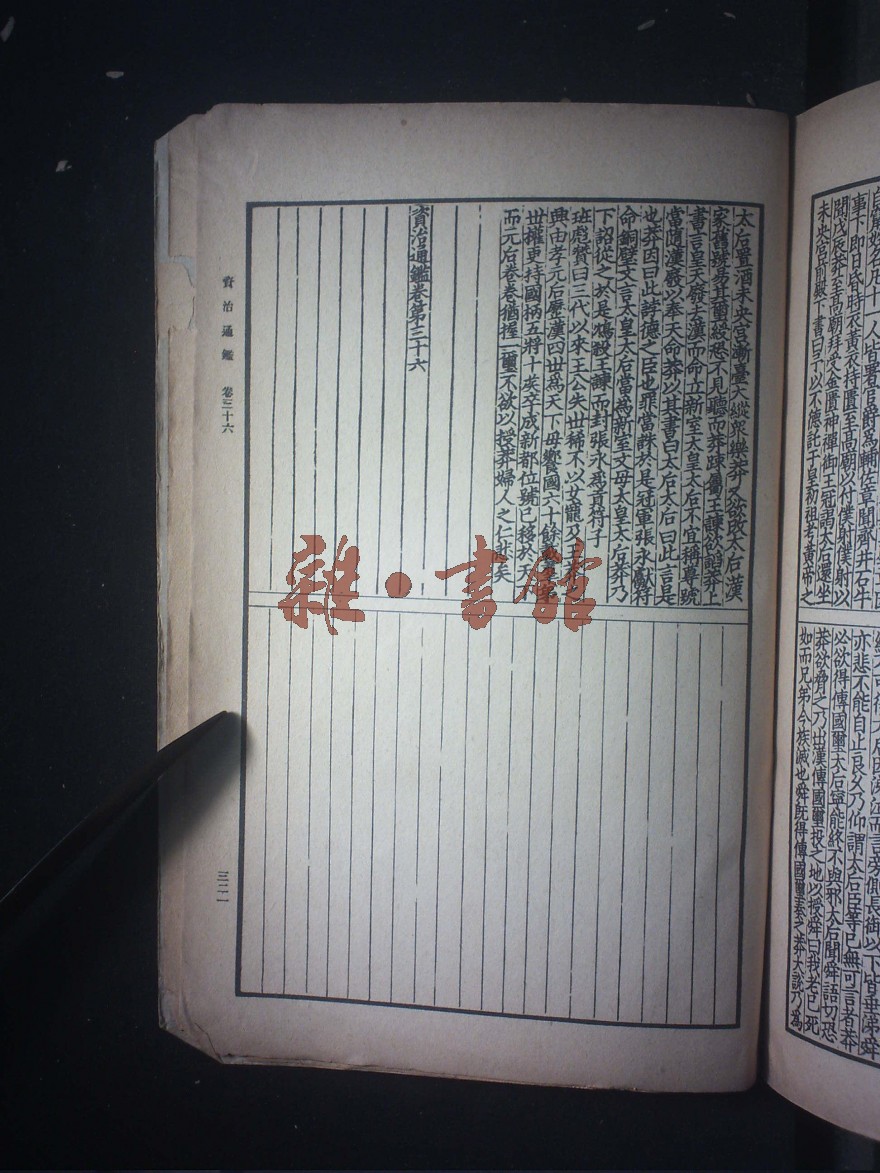 自竄姓名凡十一人皆署官爵為輔佐章聞齊井石牛
事下即日昏時衣黃衣持匱至高廟以付僕射僕射以
聞戊辰莽至高廟拜受金匱神禪御王冠謁太后還坐
未央宮前殿下書曰予以不德託于皇初祖考黃帝之
終不可得太后因涕泣而言旁側長御以下皆垂涕舜
亦悲不能自止良久乃仰謂太后臣等已無可言者莽
必欲得傳國璽太后寧能終不與邪太后聞舜語切恐
莽欲脅之乃出漢傳國璽投之地以授舜曰我老已死
如而兄弟今族滅也舜既得傳國璽奏之莽大說乃為
太后置酒未央宮漸臺大縱眾樂莽又欲改太后漢
家舊號易其璽綬恐不見聽而莽疎屬王諫欲諂莽上
書言皇天廢去漢而命立新室太皇太后不宜稱尊號
當隨漢廢以奉天命莽以其書白太后太后曰此言是
也莽因曰此誖德之臣也罪當誅於是冠軍張永獻符
命銅璧文言太皇太后當為新室文母太皇太后莽乃
下詔從之於是鴆殺王諫而封張永為貢符子
班彪贊曰三代以來王公失世稀不以女寵及王莽之
興由孝元后歷漢四世為天下母饗國六十餘載羣弟
世權更持國柄五將十侯卒成新都位號已移於天下
而元后卷卷猶握一璽不欲以授莽婦人之仁悲矣
資治通鑑卷第三十六
資治通鑑 卷三十六
三二一
雜·書館